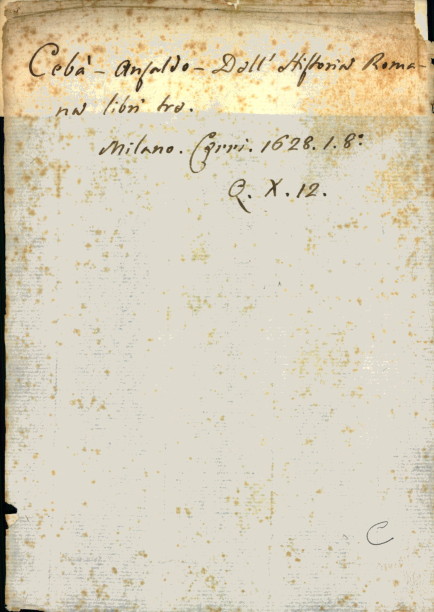 Cebà - Ansaldo - Dell' Historia Roma-
na libri tre.
Milano. Cerri. 1628. 1. 8°
Q. X. 12.
C